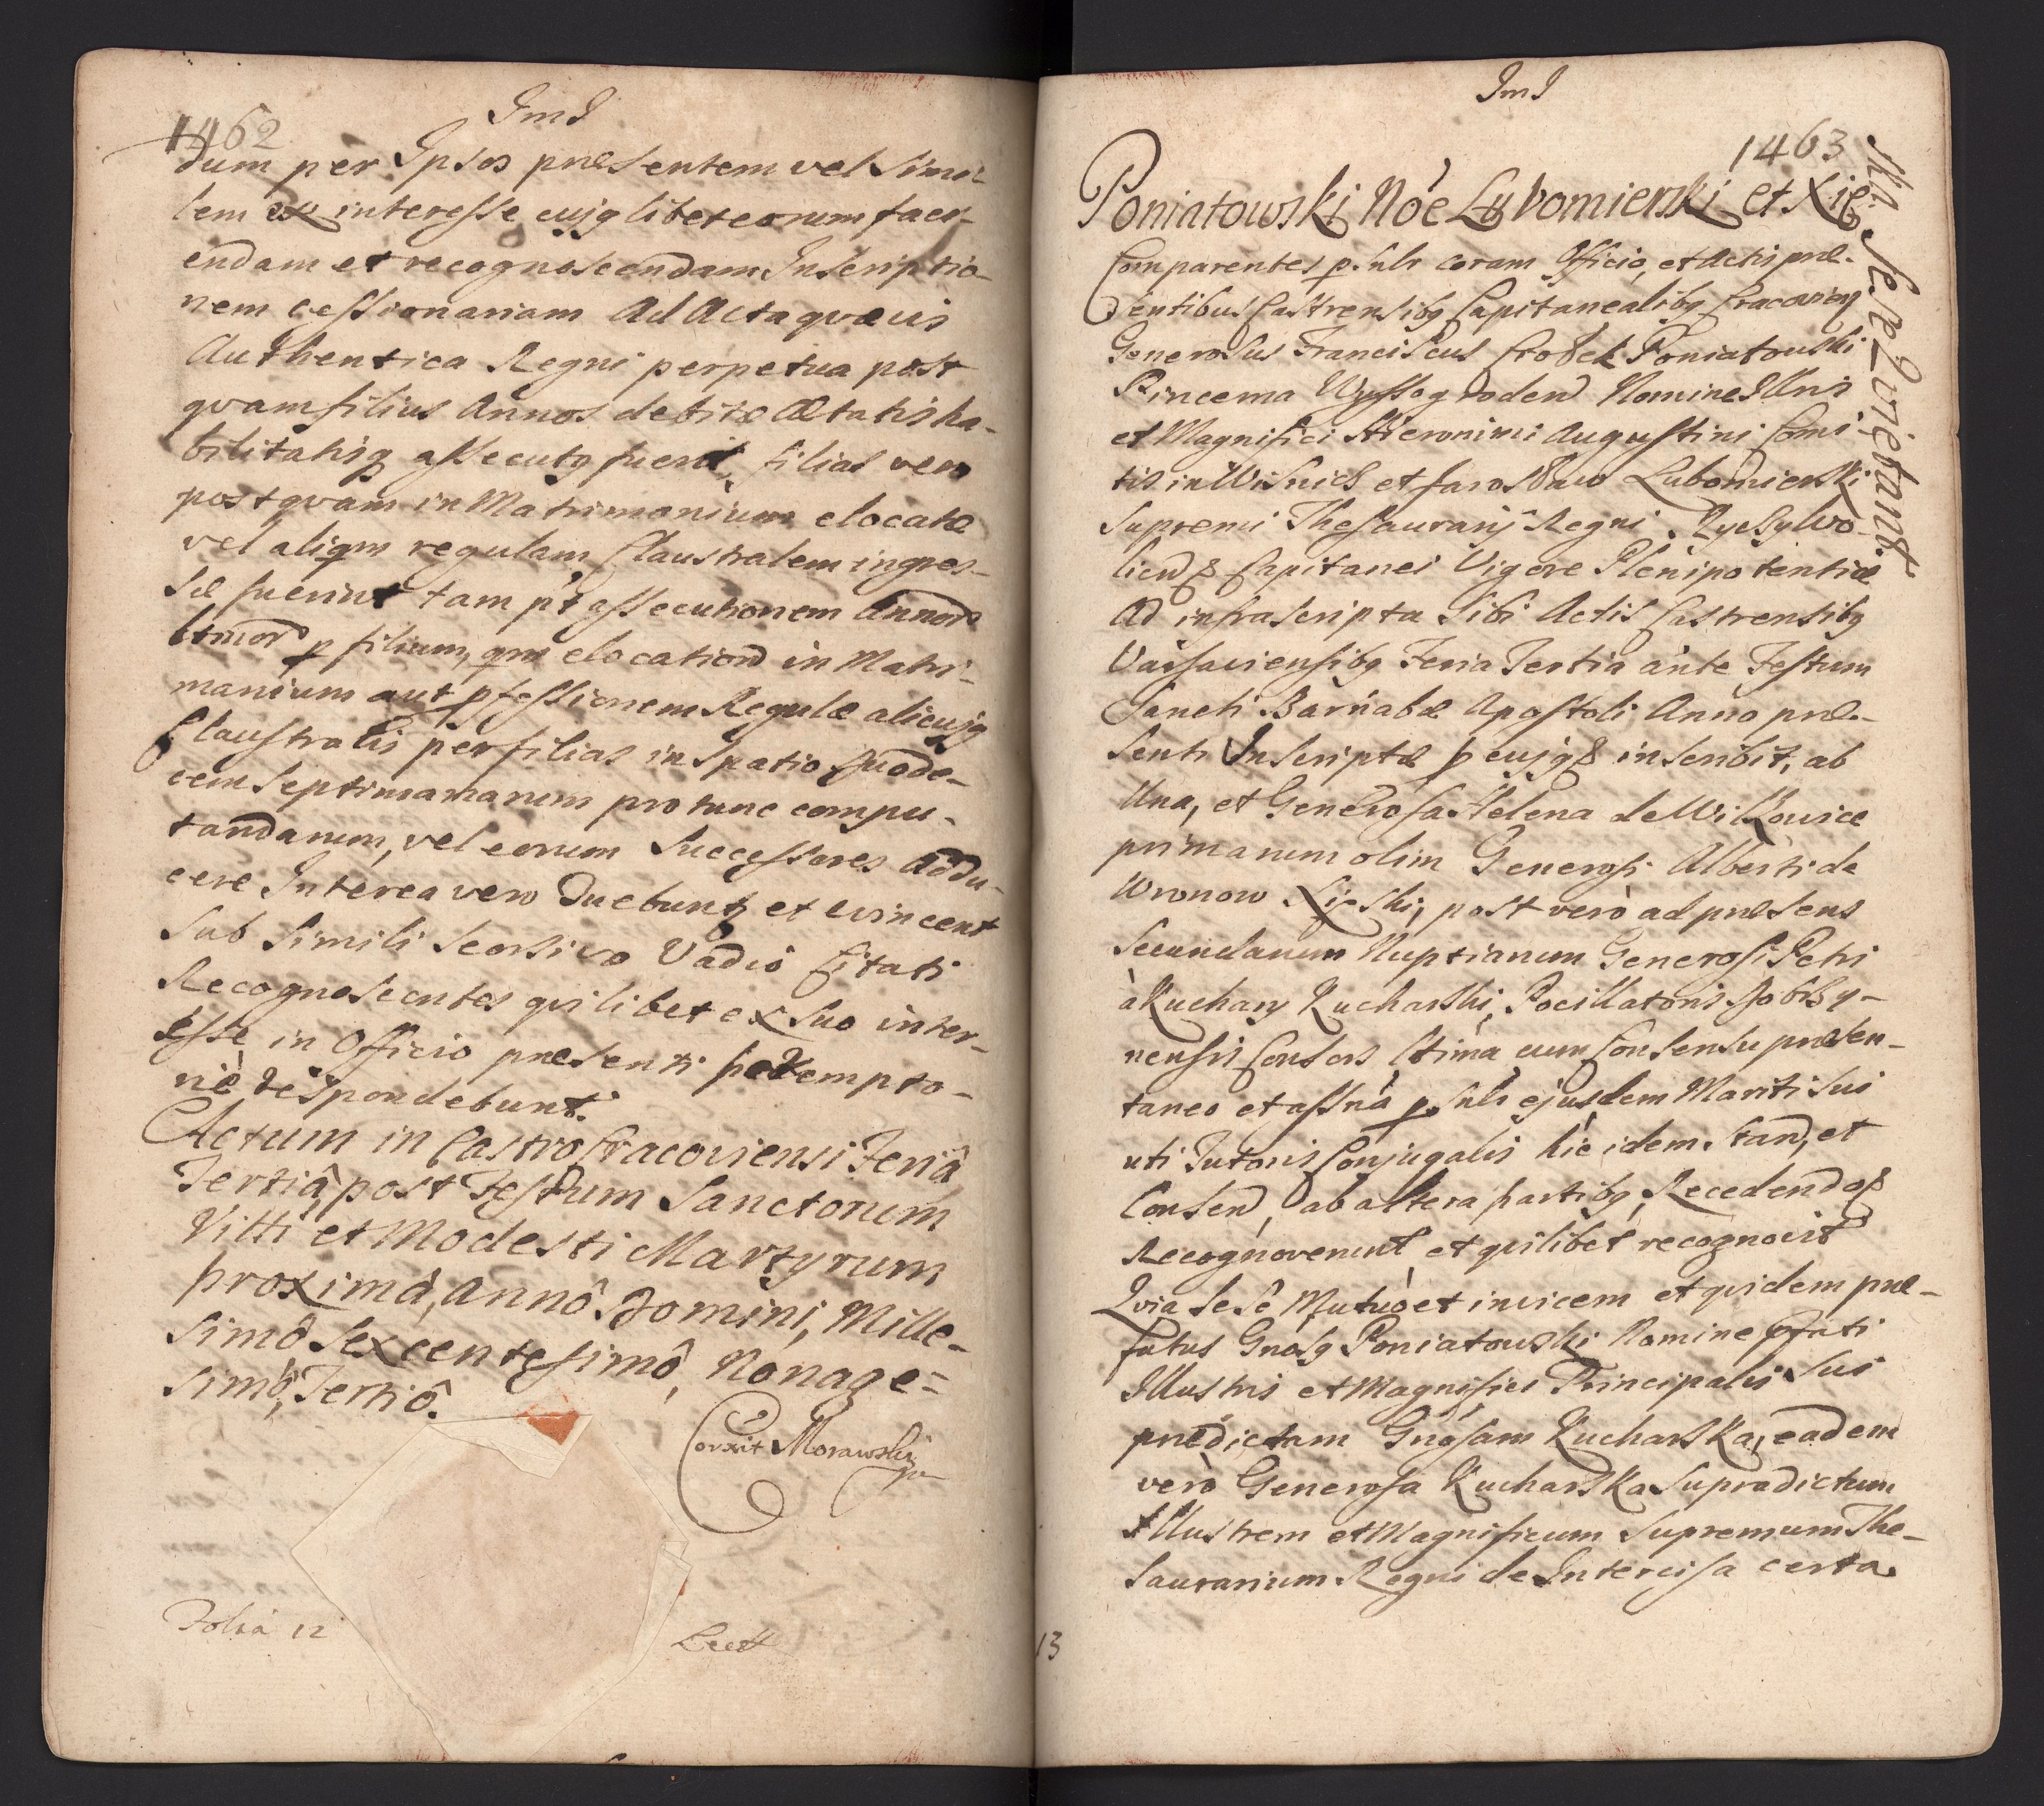 1462
ImI
dum per Ipsos præsentem vel simi-
lem ex interesse cujqlibet eorum faci-
endam et recognoscendam Inscriptio-
nem cessionariam Ad Acta quævis
Authentica Regni perpetua post
quam filius Annos debitæ Ætatis ha-
bilitatisq assecutq fuerit, filias vero
postqvam in Matrimonium elocatæ
vel aliqm regulam Claustralem ingres-
sæ fuerint tam pt assecutionem Annor
ltmor p filium, qm elocation in Matri-
manium aut pfessionem Regulæ alicujq
Claustralis per filias in spatio Duode-
cem septimanarum pro tunc compu-
tandarum, vel eorum Successores Addu-
cere Interea vero Ducbunt et evincent
sub simili seorsivo Vadio Citati
Recognoscentes qvilibet ex suo inter-
esse in Officio præsenti perempto-
riè respondebunt.
Actum in Castro Cracoviensi Feriâ
Tertiâ, post Festum Sanctorum
Vitti et Modesti Martyrum
proximâ, Annô Domini, Mille-
simô Sexcentesimô, Nonage=
simô, Tertiô.
Corrxit Morawski
Folia 12
Lect
ImI
1463
Poniatowski Noe Lubomierski et Xię
ska sese Quietant
Comparentes p.snlr coram Officio, et Actis præ-
sentibus Castrensibq Capitanealibq Cracovien
Generosus Franciscus Ciołek Poniatowski
Pincerna Wyssogroden Nomine Illris
et Magnifici Hieronimi Augustini Comi-
tis in Wisnicz et Jarosław Lubomierski
Supremi Thesaurarij Regni Ryczywo-
lien & Capitanei Vigore Plenipotentiæ
Ad infrascripta sibi Actis Castrensibq
Varsaviensibq Feria Tertia ante Festum
Sancti Barnabæ Apostoli Anno præ-
senti Inscriptæ p cujq inscribit, ab
Una, et Generosa Helena de Wilkowice
primarum olim Generosi Alberti de
Wronow Xięski, post verò ad præsens
secundarum Nuptiarum Generosi Petri
à Kuchary Kucharski, Pocillatoris
nensis Consors ltima cum Consensu præsen-
taneo et assña p.snlr ejusdem Mariti sui
uti Tutoris Conjugalis hic idem stan, et
Consen, ab altera partibq, Recedend
Recognoverunt, et qvilibet recognovit
Quia sese Mutuò et invicem et qvidem præ-
fatus Gnosq Poniatowski Nomine pfati
Illustris et Magnifici Principalis sui
prædictam Gñosam Kucharska, eadem
verò Generosa Kucharska supradictum
Illustrem et Magnificum Supremum The-
saurarium Regni de Intercisa certa
13